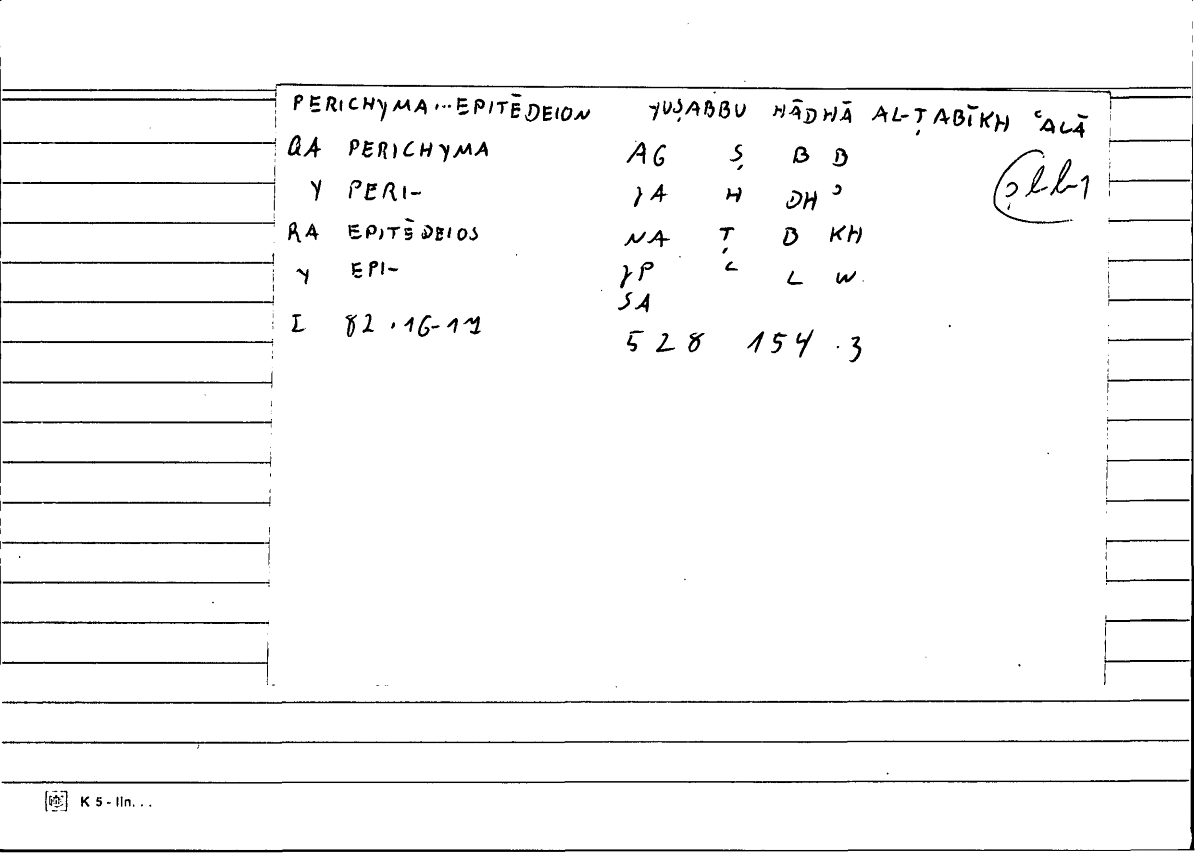 PERICHYMA...EPITĒDEION YUṢABBU HĀDHĀ AL-ṬABĪKH ʿALĀ
QA PERICHYMA AG Ṣ B B
Y PERI- YA H DH ʾ
RA EPITĒDEIOS NA Ṭ B KH
Y EPI- YP ʿ L W
SA
I 82.16-17 528 154.3
K 5 - lln...